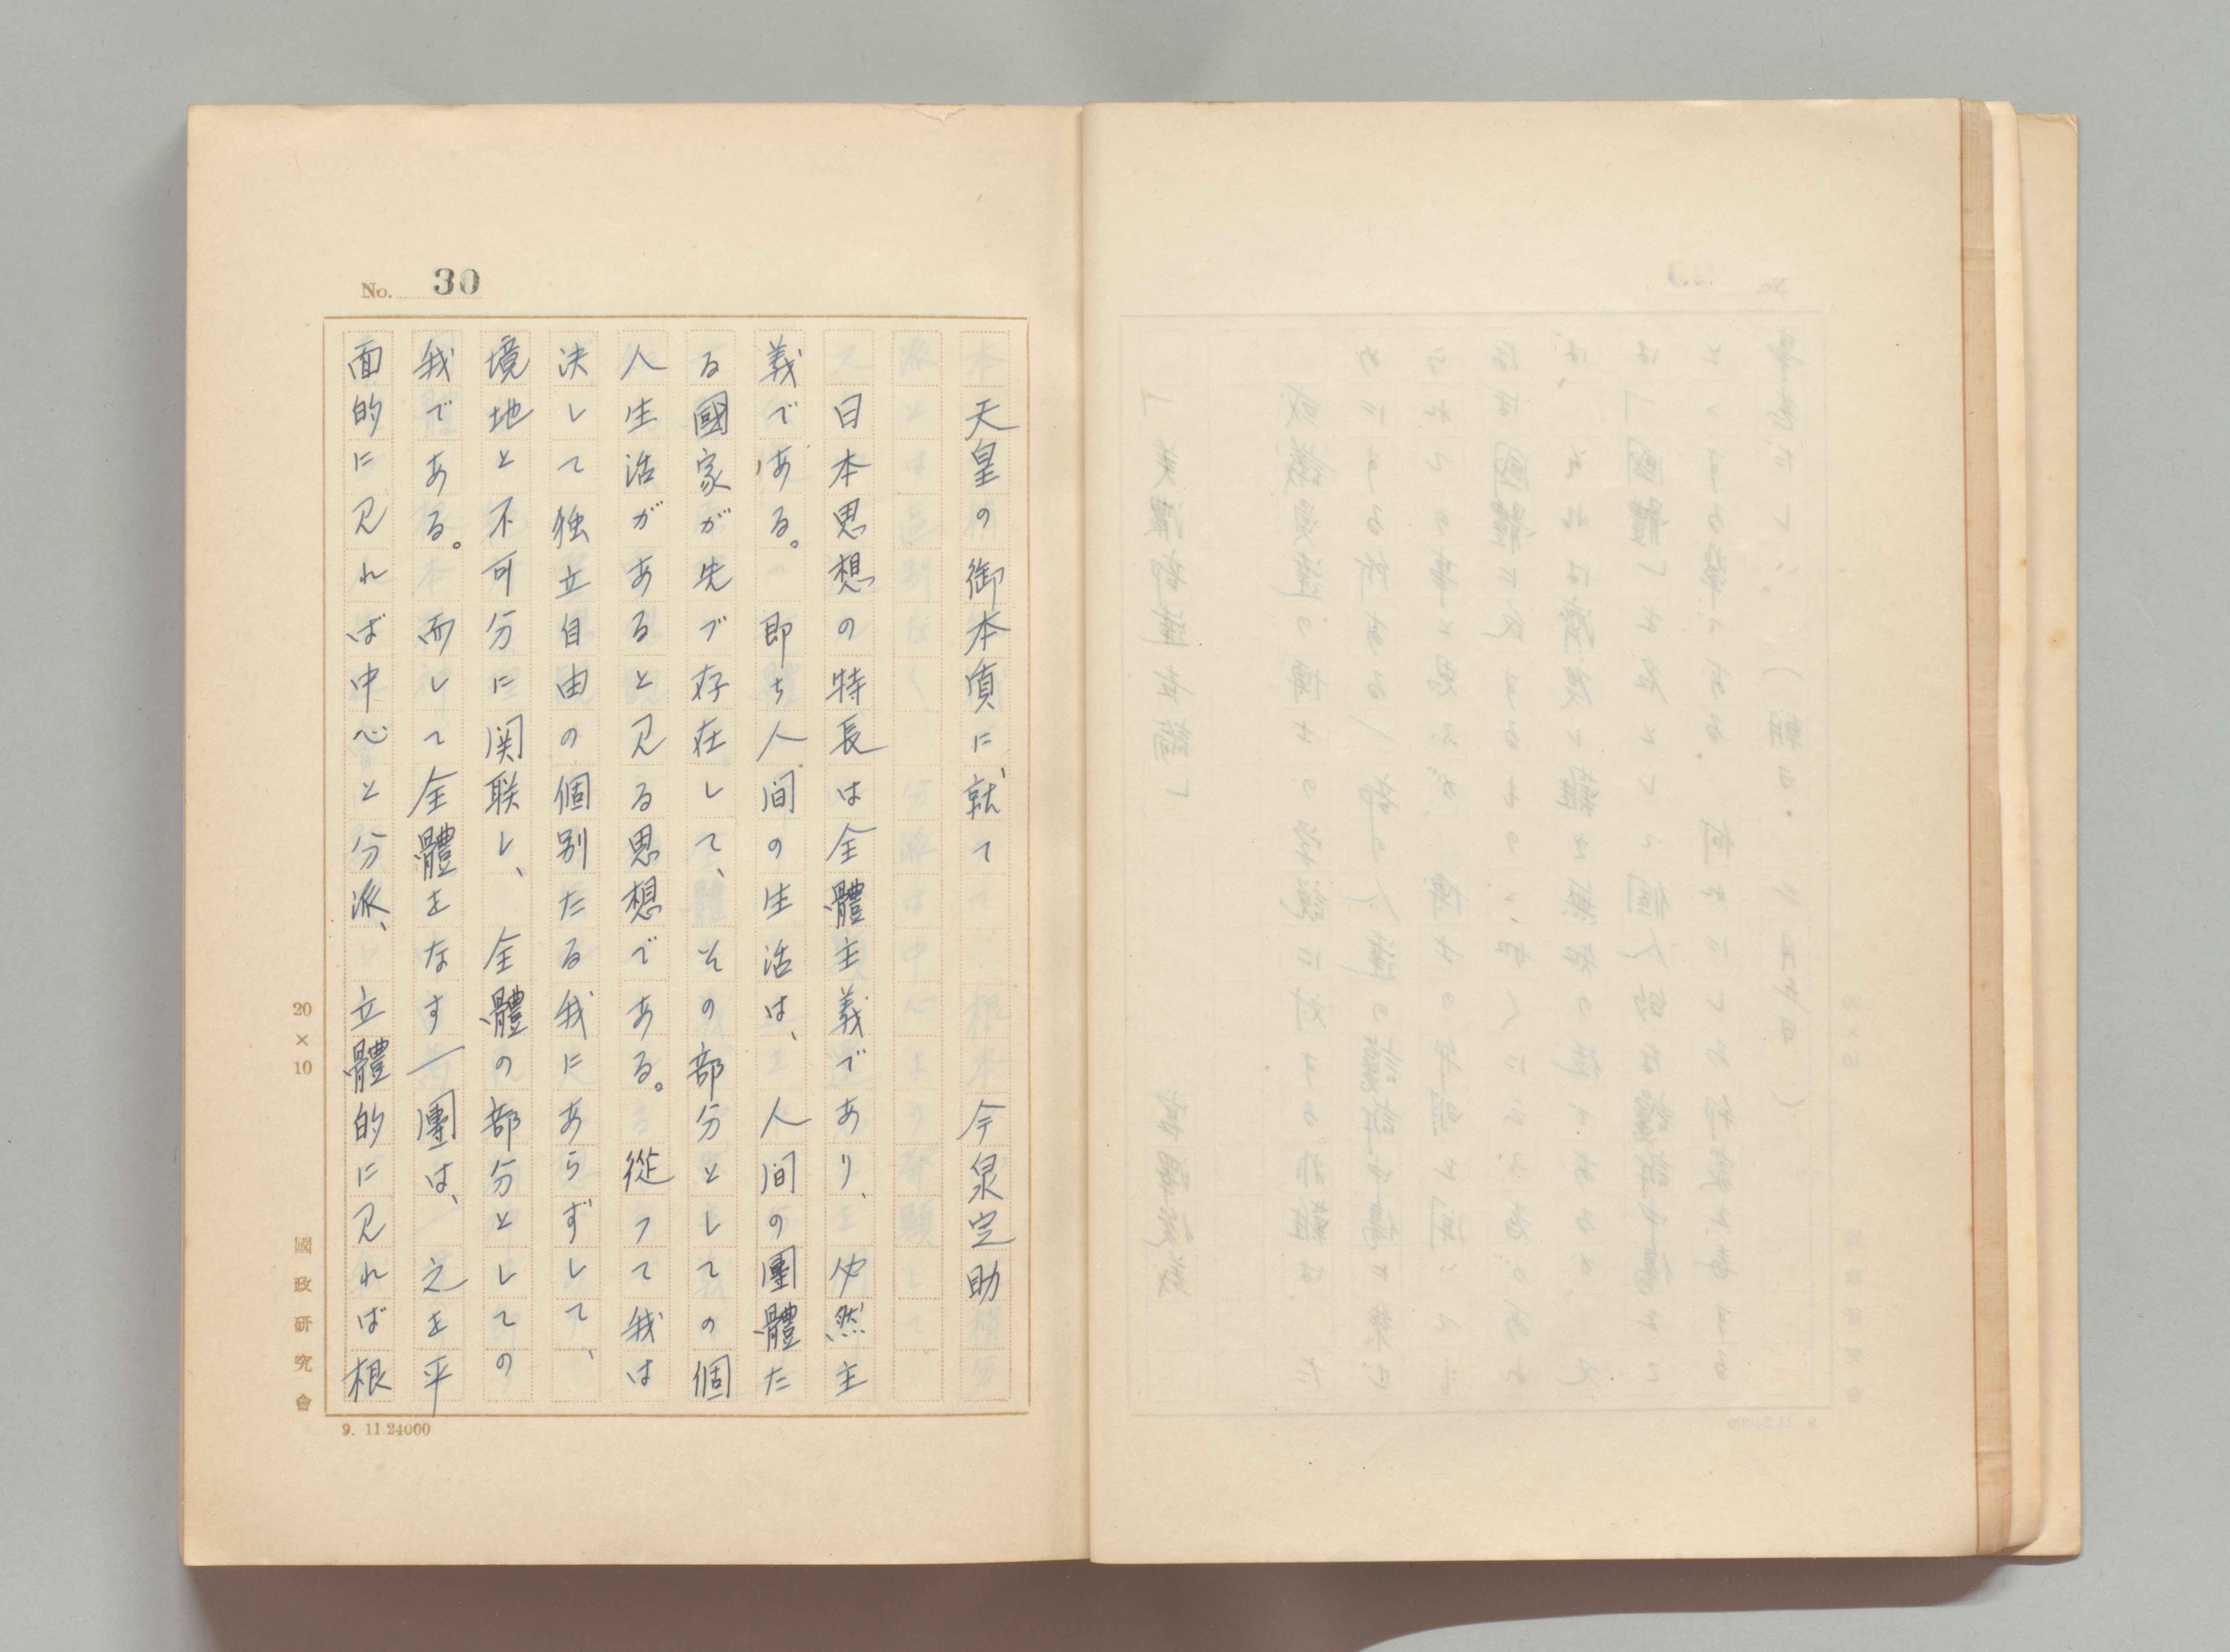 No. 30
天皇の御本質に就て　今泉定助
日本思想の特長は全體主義であり、必然主
義である。　即ち人間の生活は、人間の團體た
る國家が先づ存在して、その部分としての個
人生活があると見る思想である。從つて我は
決して独立自由の個別たる我にあらずして、
境地と不可分に関联し、全體の部分としての
我である。　而して全體をなす一團は、之を平
面的に見れば中心と分派、立體的に見れば根
20×10
國政研究會
9. 11 24000